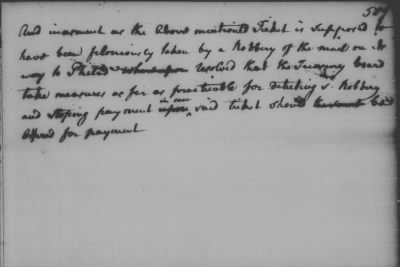 589
And inasment as the above mentioned Ticket is supposed to
have been feloniously taken by a Robbery of the mail on its
way to Philad whereupon resolved that the Treasury board
take measures as far as practicable for detecting sd Robbery
and stoping payment upon in case said ticket should be
offered for payment